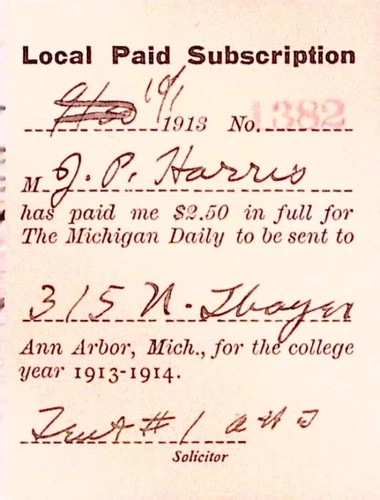 Local Paid Subscription
10/1 1913 No. 1382
M J. P. Harris
has paid me $2.50 in full for
The Michigan Daily to be sent to
315 N. Thayer
Ann Arbor, Mich., for the college
year 1913-1914.
Tent # 1
Solicitor